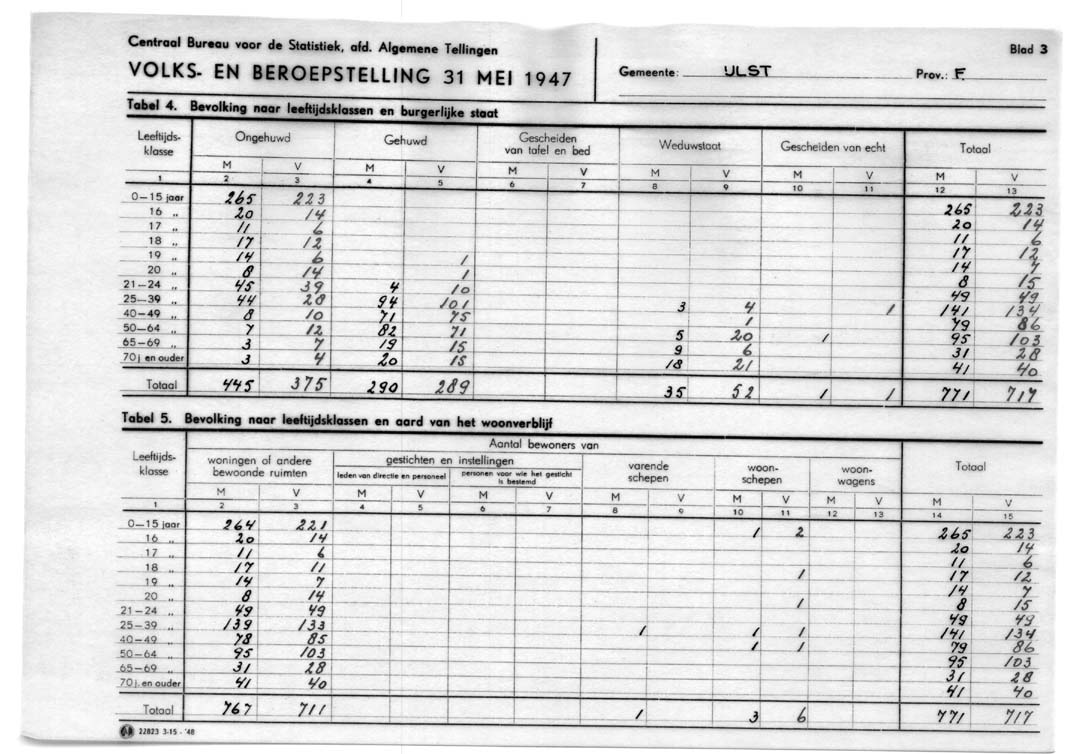 Centraal Bureau voor de Statistiek, afd. Algemene Tellingen
Blad 3
VOLKS- EN BEROEPSTELLING 31 MEI 1947
Gemeente: IJLST Prov.: F.
Tabel 4. Bevolking naar leeftijdsklassen en burgerlijke staat
Leeftijds-klasse Ongehuwd Gehuwd Gescheiden van tafel en bed Weduwstaat Gescheiden van echt Totaal
M V M V M V M V M V M V
1 2 3 4 5 6 7 8 9 10 11 12 13
0—15 jaar 265 223 265 223
16 „ 20 14 20 14
17 „ 11 6 11 6
18 „ 17 12 17 12
19 „ 14 6 1 14 7
20 „ 8 14 1 8 15
21—24 „ 45 39 4 10 49 49
25—39 „ 44 28 94 101 3 4 1 141 134
40—49 „ 8 10 71 75 1 79 86
50—64 „ 7 12 82 71 5 20 1 95 103
65—69 „ 3 7 19 15 9 6 31 28
70 j en ouder 3 4 20 15 18 21 41 40
Totaal 445 375 290 289 35 52 1 1 771 717
Tabel 5. Bevolking naar leeftijdsklassen en aard van het woonverblijf
Leeftijds-klasse Aantal bewoners van Totaal
woningen of andere bewoonde ruimten gestichten en instellingen varende schepen woon-schepen woon-wagens
leden van directie en personeel personen voor wie het gesticht is bestemd
M V M V M V M V M V M V M V
1 2 3 4 5 6 7 8 9 10 11 12 13 14 15
0—15 jaar 264 221 1 2 265 223
16 „ 20 14 20 14
17 „ 11 6 11 6
18 „ 17 11 1 17 12
19 „ 14 7 14 7
20 „ 8 14 1 8 15
21—24 „ 49 49 49 49
25—39 „ 139 133 1 1 1 141 134
40—49 „ 78 85 1 1 79 86
50—64 „ 95 103 95 103
65—69 „ 31 28 31 28
70 j. en ouder 41 40 41 40
Totaal 767 711 1 3 6 771 717
22823 3-15 - '48